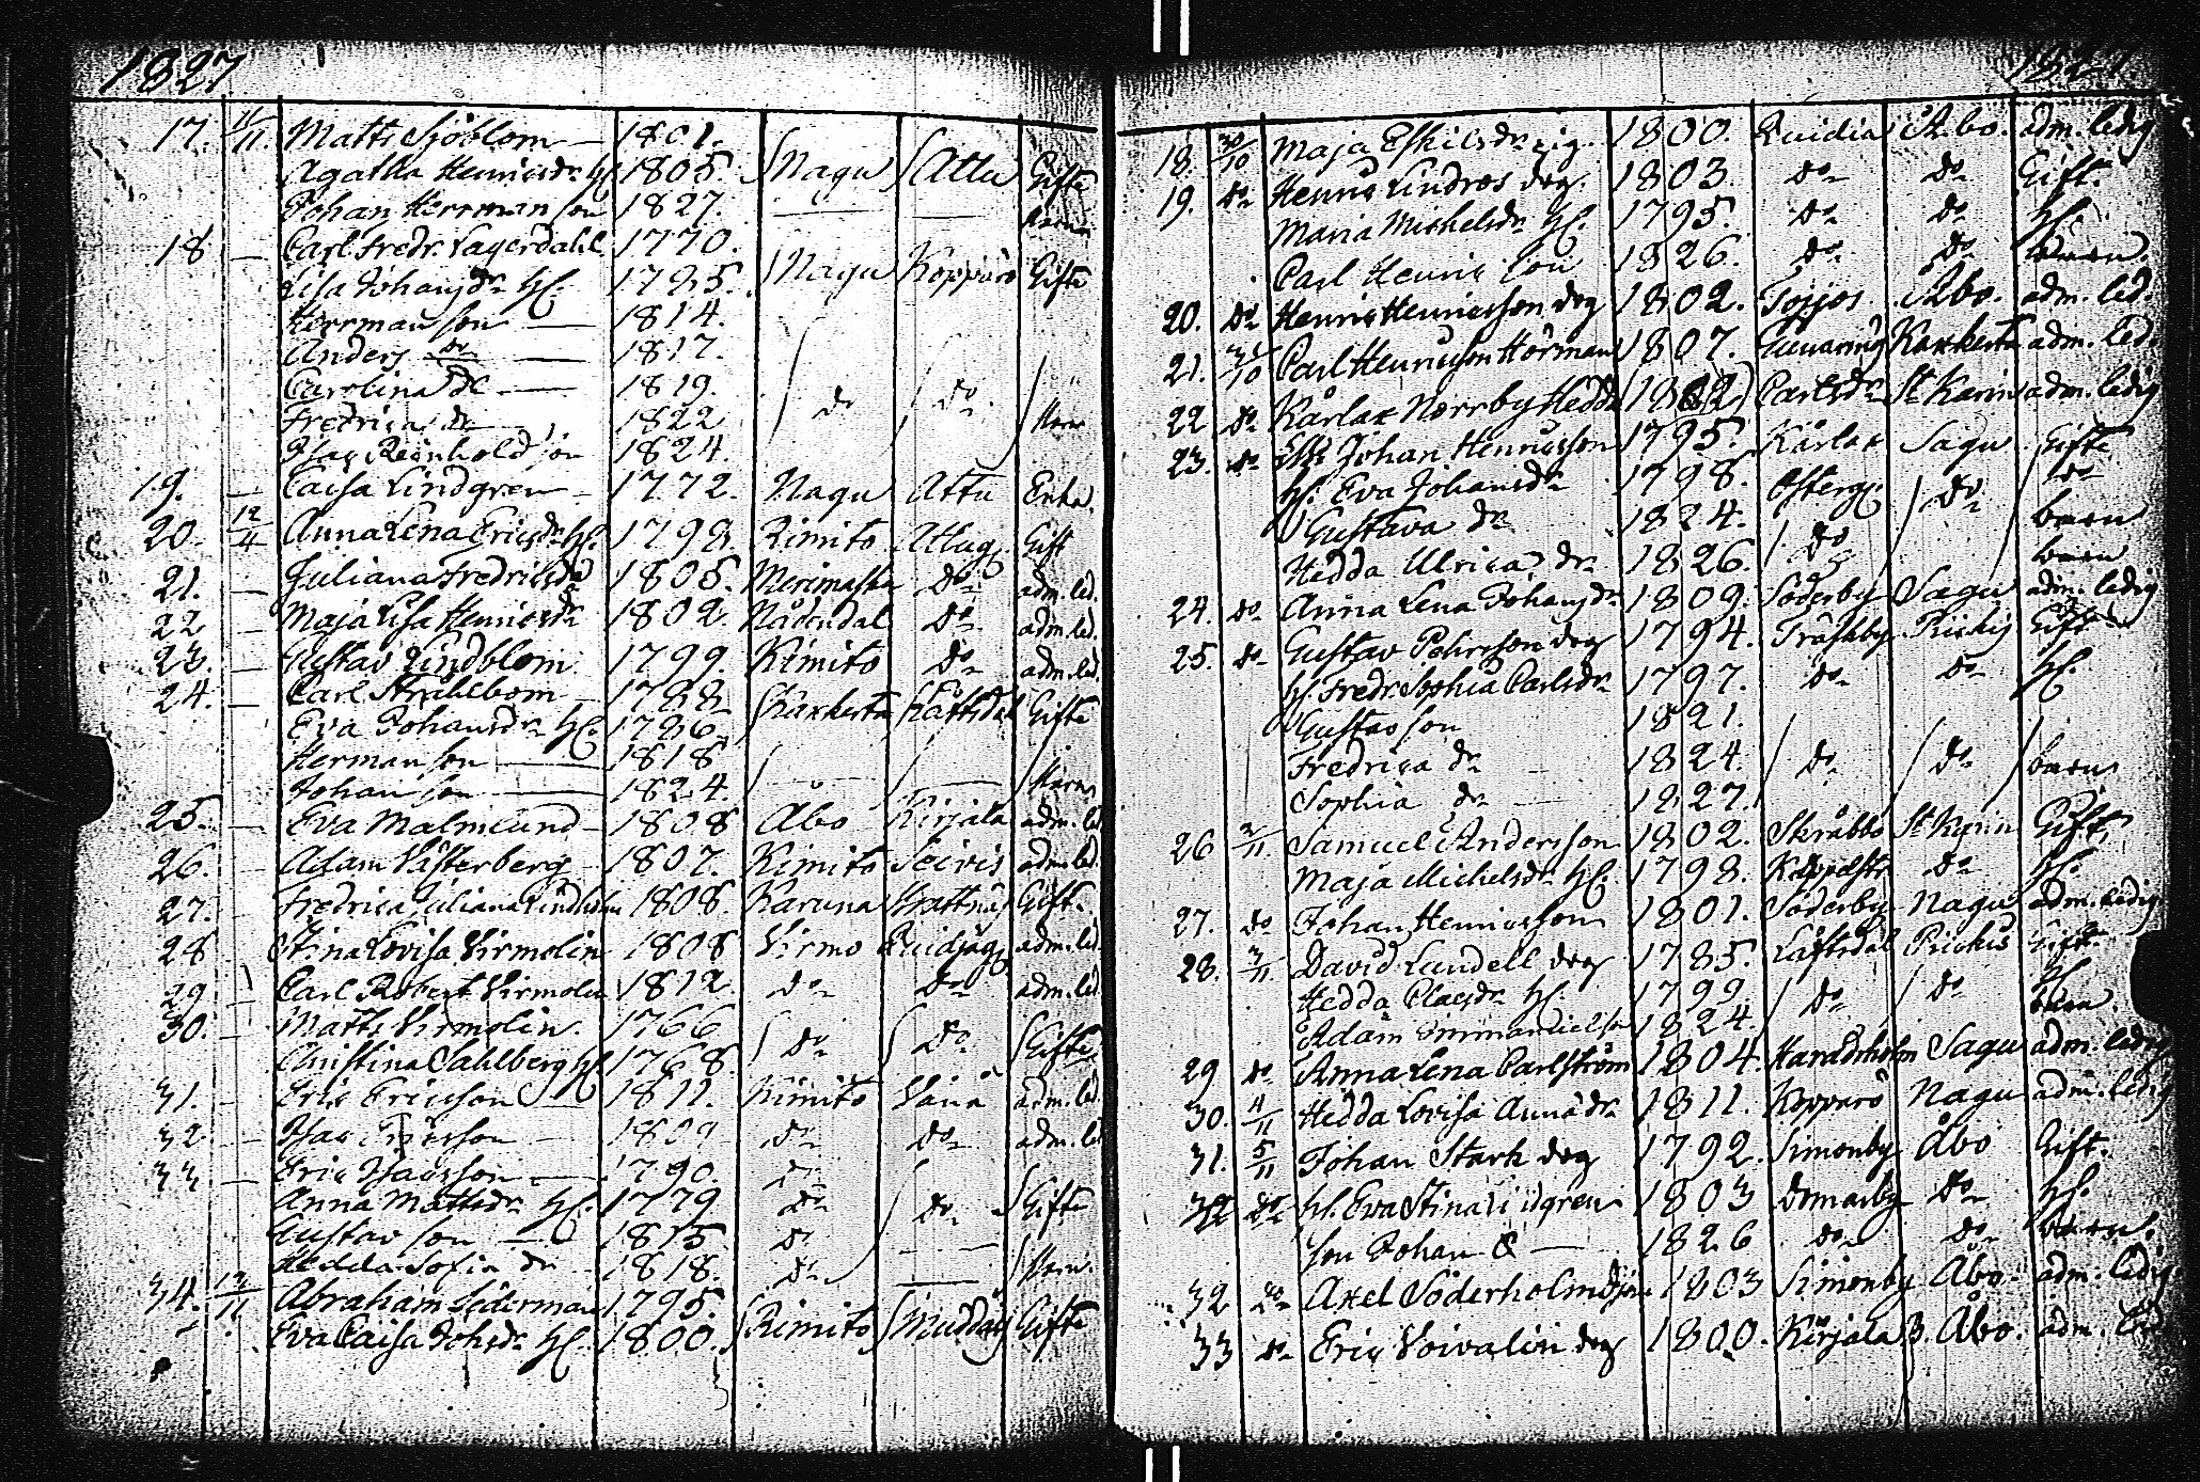 1827
17. 11/11. Matts Sjöblom — 1801.
Agatha Henricsdr Hu 1805. Nagu Attu Gifte
Johan Herrman son 1827. Barn
18 — Carl Fredr. Lagerdahl 1770.
Lisa Johansdr Hu. 1785. Nagu Koppars Gifte
Herrman son — 1814.
Anders do — 1817.
Carolina dr — 1819. do do
Fredrica dr — 1822 Barn
Isac Reinhold son 1824.
19. — Caisa Lindgren — 1772. Nagu Attu Enka.
20. 12/4 Anna Lena Ericsdr Hu. 1798. Kimito Attug Gift
21. — Juliana Fredricsdr 1805. Merimasku do adm. led.
22 — Maja Lisa Henricsdr 1802. Nådendal do adm. led.
23. — Gustav Lindblom 1799. Kimito do adm. led.
24. — Carl Strahlbom 1788
Eva Johansdr Hu. 1786 Karkerta Låftsdal Gifte
Herman son — 1818
Johan son — 1824. Barn
25. — Eva Malmlund — 1808 Åbo Kirjala adm. led
26. — Adam Vesterberg 1807. Kimito adm. led.
27. — Fredrica Juliana Lindholm 1808. Karuna Krattnäs Gift.
28 — Stina Lovisa Virmolin 1808 Virmo adm. led.
29 — Carl Robert Virmolin 1812. do do adm. led.
30. — Matts Virmolin. 1766
Christina Sahlberg Hu 1768. do do Gifte
31. — Eric Ericsson — 1811. Kimito Vånå adm. led.
32 — Isac Ericsson — 1809 do do adm. led
33 — Eric Isacsson — 1790. do
Anna Mattsdr Hu. 1779 do do Gifte
Gustav son — 1815 do
Hedda Sofia dr 1818. do Barn.
34. 12/11 Abraham Söderman 1795.
Eva Caisa Johsdr Hu. 1800. Kimito Muddäis Gifte
18. 30/10 Maja Eskilsdr pig. 1800. Åbo. adm. ledig
19. do Henric Lindros drg. 1803. do do Gift.
Maria Michelsdr Hu. 1795. do do Hu.
Carl Henric son 1826. do do barn.
20. do Henric Henricsson drg 1802. Åbo. adm. led.
21. 31/10 Carl Henricsson Hörman 1807. Gunnarnäs Karkerta adm. led.
22 do Kårlax Norrby Hedda (1802) Carlsdr St Karin adm. ledig
23. do Johan Henricsson 1795. Kårlax Sagu Gifte
Hu. Eva Johansdr 1798. do do
Gustava dr 1824. barn
Hedda Ulrica dr 1826. do barn
24. do Anna Lena Johansdr 1809. Söderby Sagu adm. ledig
25. do Gustav Pehrsson drg 1794. Träskby Pickis Gift
Hu. Fredr. Sophia Carlsdr 1797. do do Hu.
Gustav son 1821.
Fredrica dr — 1824. do do barn
Sophia dr — 1827.
26 2/11. Samuel Andersson 1802. Skråbbo St Karin Gift.
Maja Michelsdr Hu. 1798. do Hu.
27. do Johan Henricsson 1801. Söderby Nagu adm. ledig.
28. 3/11 David Lundell drg 1785. Låftsdal Pickis Gift.
Hedda Claesdr Hu. 1799. do do Hu
Adam Emmanuelson 1824. barn.
29 do Anna Lena Carlström 1804. Haradsholm Sagu adm. ledig
30. 4/11 Hedda Lovisa Annadr 1811. Kopparö Nagu adm. ledig
31. 5/11 Johan Stark drg 1792. Simonby Åbo Gift.
32 do Hu. Eva Stina Lidgren 1803 Domarby do Hu.
son Johan — 1826 do do barn.
32 do Axel Söderholm 1803 Simonby Åbo. adm. ledig.
33 do Eric Voivalin drg 1800. Kirjala Åbo. adm. led